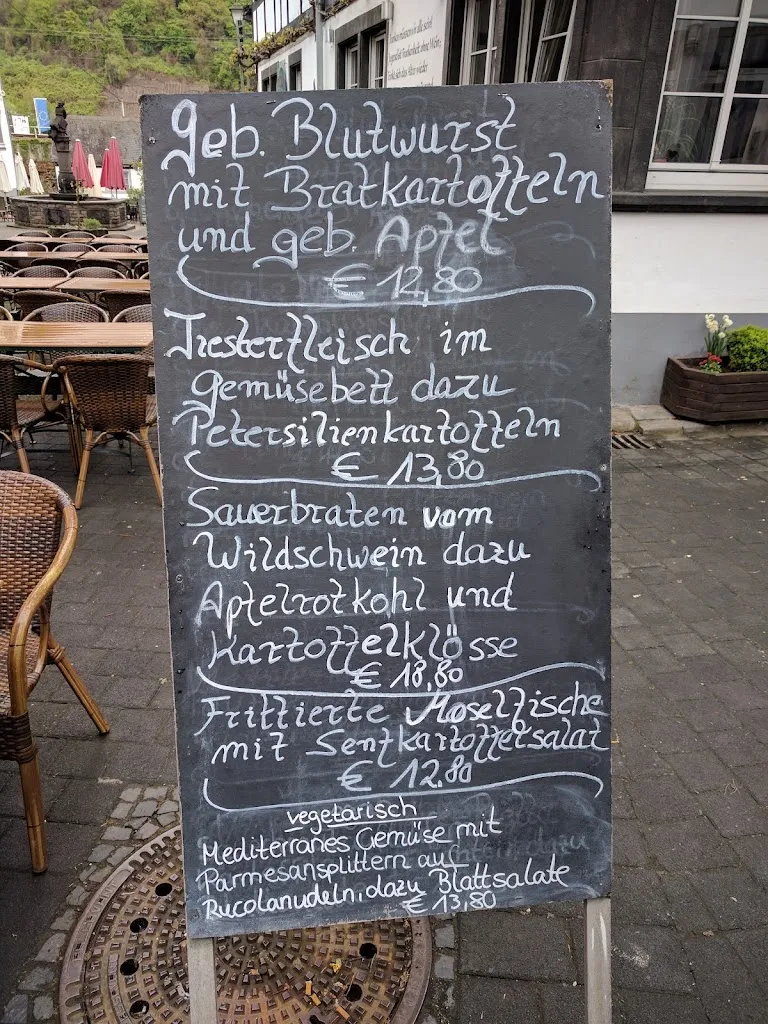 geb. Blutwurst
mit Bratkartoffeln
und geb. Apfel
€ 12,80
Tresterfleisch im
gemüsebett dazu
Petersilienkartoffeln
€ 13,80
Sauerbraten vom
Wildschwein dazu
Apfelrotkohl und
Kartoffelklösse
€ 18,80
Frittierte Moselfische
mit Senfkartoffelsalat
€ 12.80
vegetarisch
Mediterranes Gemüse mit
Parmesansplittern auf
Rucolanudeln, dazu Blattsalate
€ 13,80